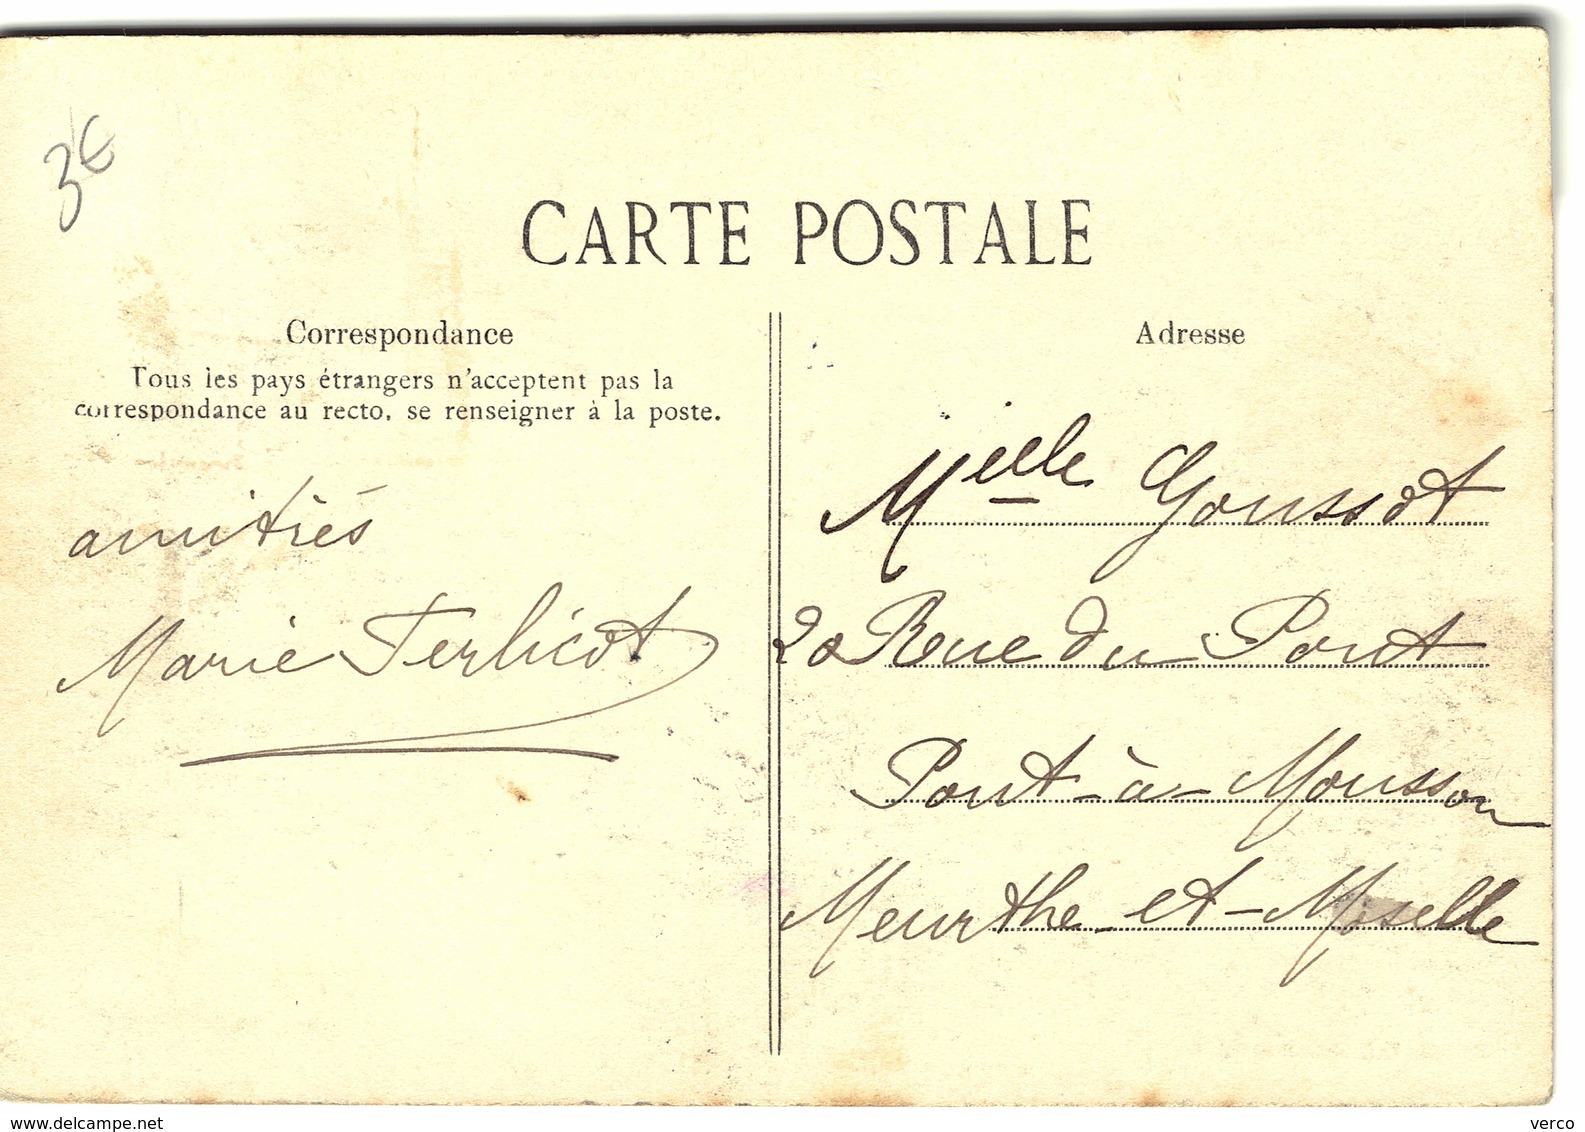 3€
CARTE POSTALE
Correspondance
Tous les pays étrangers n'acceptent pas la
correspondance au recto, se renseigner à la poste.
amitiés
Marie Terlicot
Adresse
Mielle Goussot
20 Rue du Pont
Pont-à-Mousson
Meurthe-et-Moselle
www.delcampe.net
verco